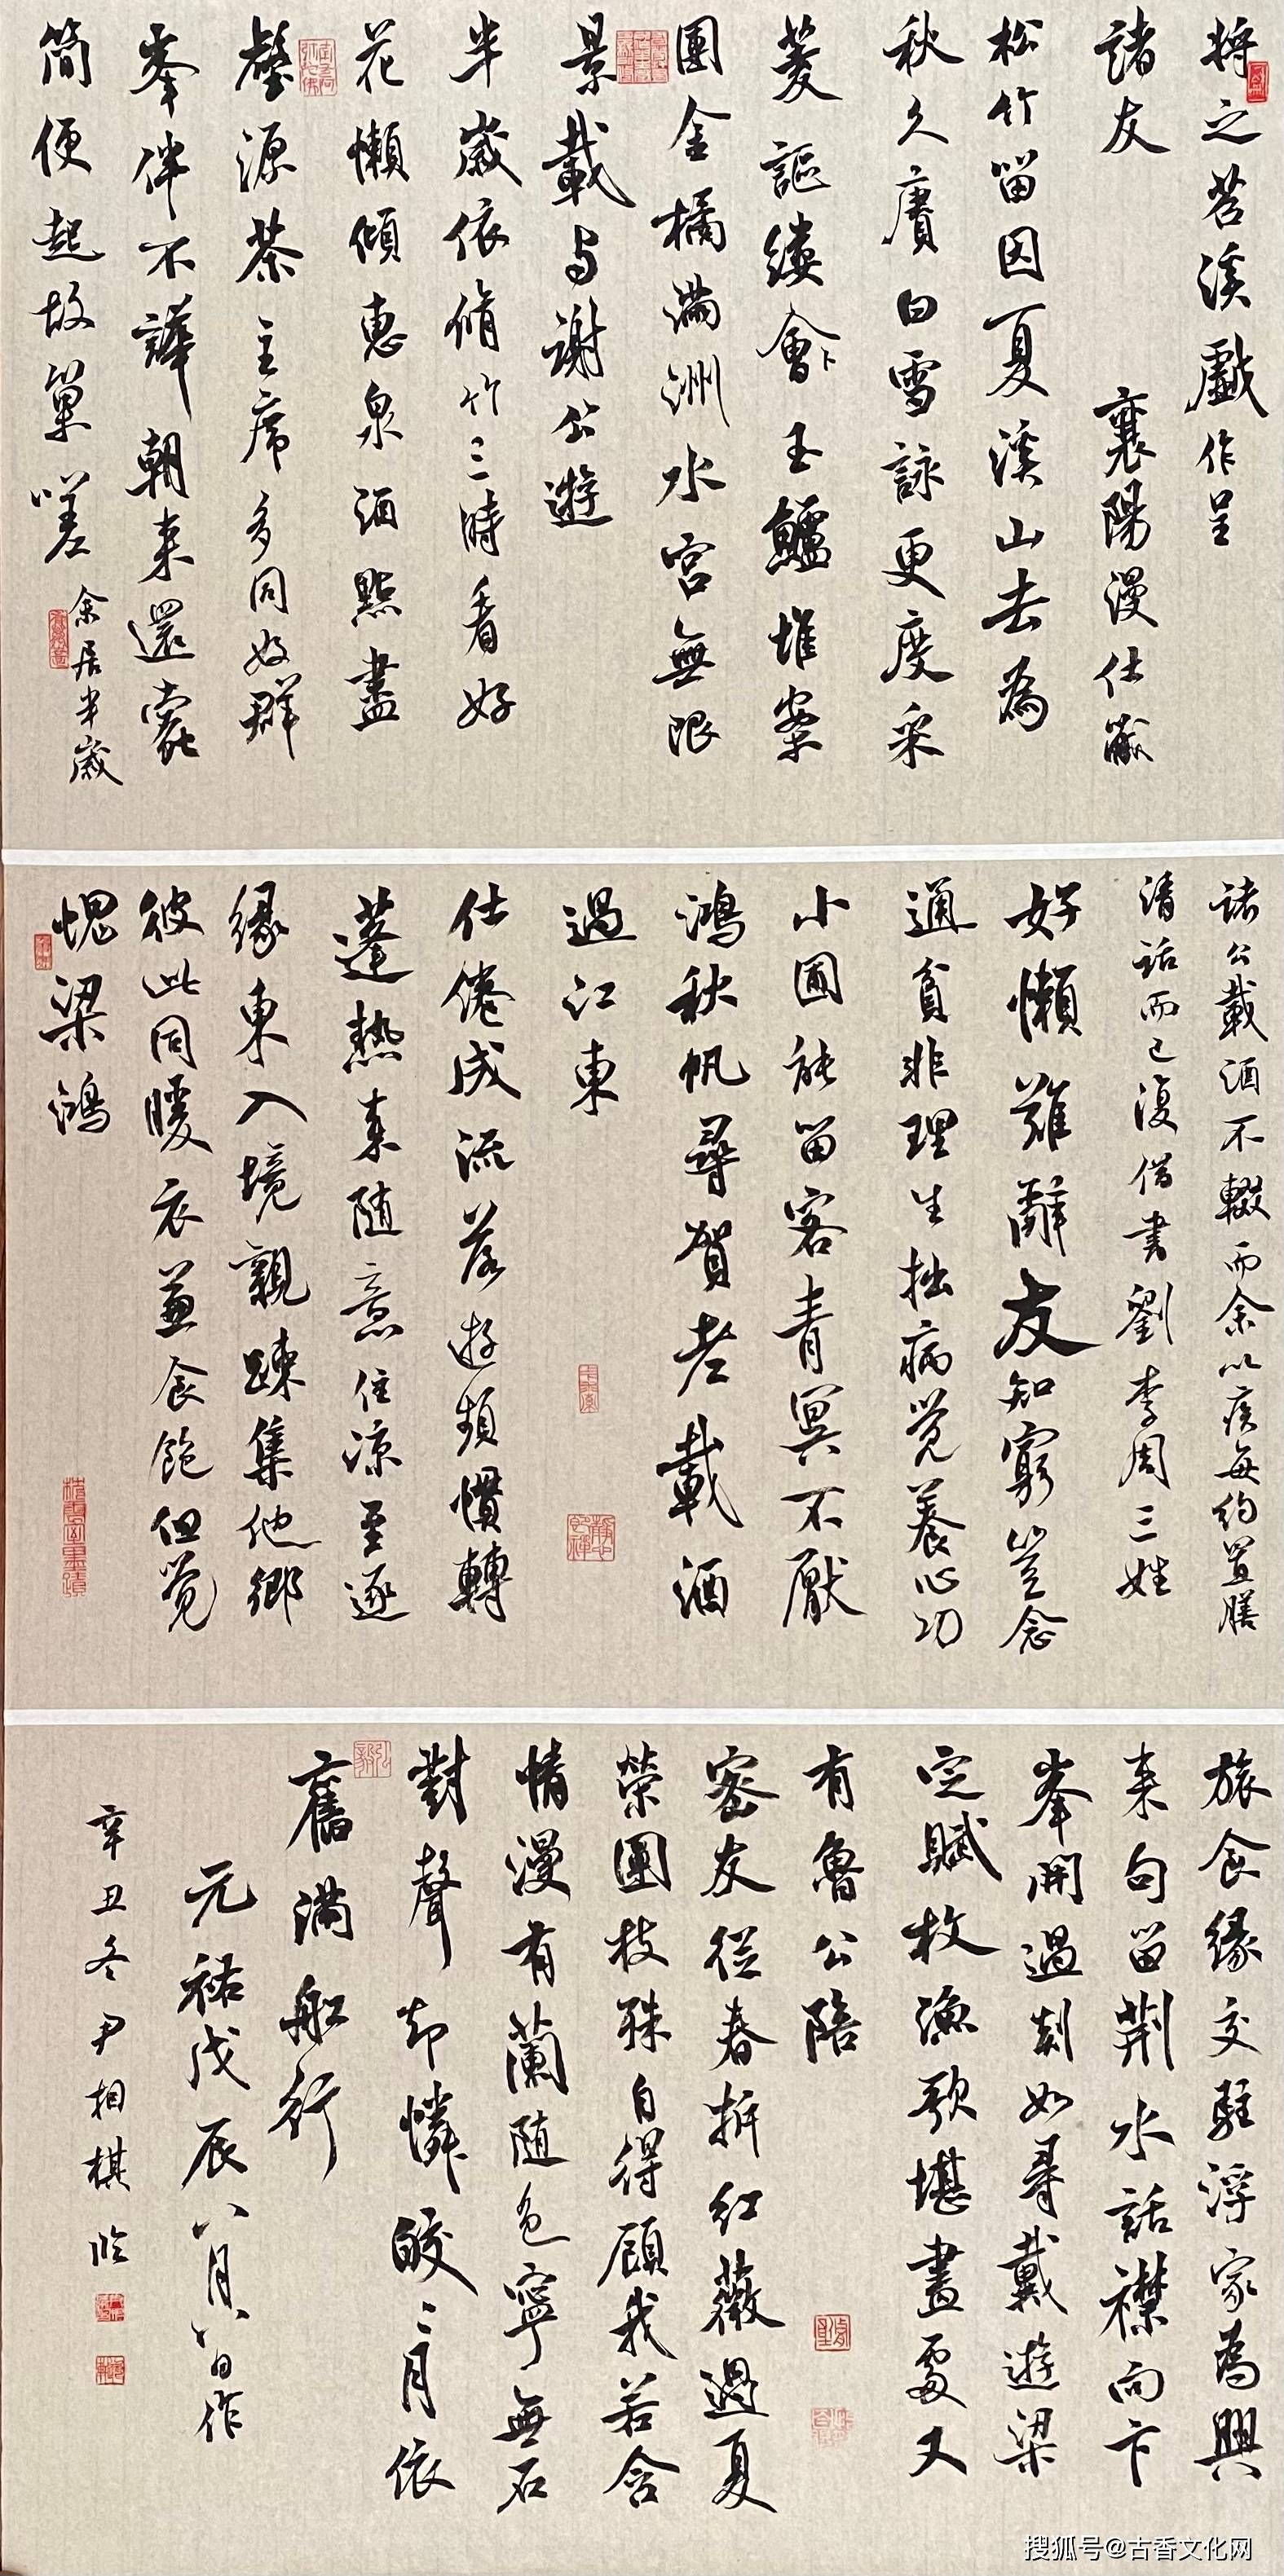 將之苕溪戲作呈
諸友 襄陽漫仕黻
松竹留因夏溪山去為
秋久賡白雪詠更度采
菱謳縷會卜玉鱸堆案
團金橘滿洲水宮無限
景載与謝公遊
半歲依脩竹三時看好
花懶傾惠泉酒點盡
壑源茶主席多同好群
峯伴不譁朝来還蠹
簡便起故巢嗟 余居半歲
諸公載酒不輟而余以疾每約置膳
清話而已復借書劉李周三姓
好懶難辭友知窮豈念
通貧非理生拙病覺養心功
小圃能留客青冥不厭
鴻秋帆尋賀老載酒
過江東
仕倦成流落遊頻慣轉
蓬熱来随意住凉至逐
緣東入境親疎集他鄉
彼此同暖衣兼食飽但覺
愧梁鴻
旅食緣交駐浮家為興
来句留荆水話襟向卞
峯開過剡如尋戴遊梁
定賦枚漁歌堪畫處又
有魯公陪
密友從春拆紅薇過夏
榮團枝殊自得顧我若含
情漫有蘭随色寧無石
對聲却憐皎々月依
舊滿船行
元祐戊辰八月八日作
辛丑冬尹相棋临
搜狐号@古香文化网